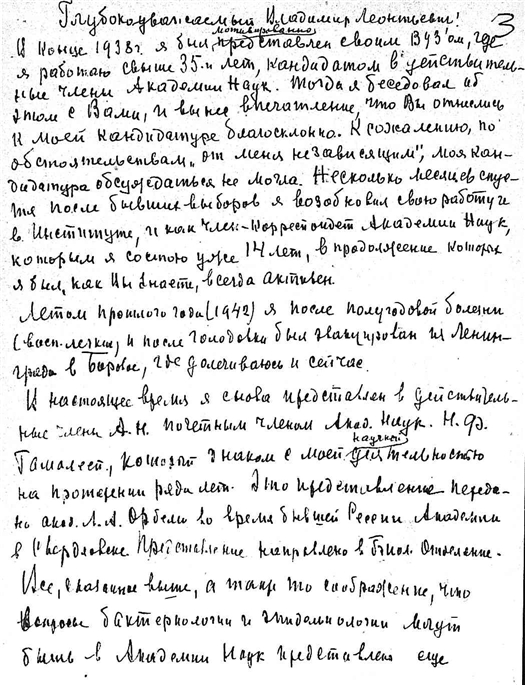 3
Глубокоуважаемый Владимир Леонтьевич!
мотивированно
В конце 1938г. я был представлен своим ВУЗ'ом, где
я работаю свыше 35-и лет, кандидатом в действитель-
ные члены Академии Наук. Тогда я беседовал об
этом с Вами, и вынес впечатление, что Вы отнеслись
к моей кандидатуре благосклонно. К сожалению, по
обстоятельствам "от меня независящим", моя кан-
дидатура обсуждаться не могла. Несколько месяцев спус-
тя после бывших выборов я возобновил свою работу и
в Институте, и как член-корреспондент Академии Наук,
которым я состою уже 14 лет, в продолжение которых
я был, как Вы знаете, всегда активен.
Летом прошлого года (1942) я после полугодовой болезни
(восп. легких) и после голодовки был эвакуирован из Ленин-
града в Боровое, где долечиваюсь и сейчас.
В настоящее время я снова представлен в действитель-
ные члены А.Н. почетным членом Акад. Наук. Н.Ф.
научной
Гамалеей, который знаком с моей деятельностью
на протяжении ряда лет. Это представление переда-
но акад. Л.А. Орбели во время бывшей Сессии Академии
в Свердловске. Представление направлено в Биол. Отделение.
Все, сказанное выше, а также то соображение, что
вопросы бактериологии и эпидемиологии могут
быть в Академии Наук представлены еще